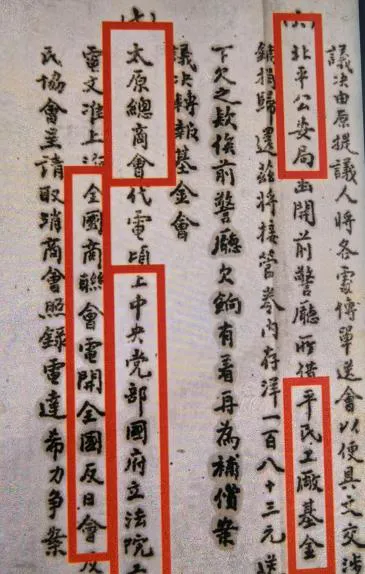 議决由原提議人将各處傳單送會以便具文交涉
(六)北平公安局函開前警廳所借平民工廠基金
餉捐歸還茲将接管卷內存洋一百八十三元送
下欠之欵俟前警廳欠餉有着再為補償案
議决轉報基金會
(七)太原總商會代電頃上中央党部國府立法院
電文准上海全國商聯會電開全國反日會反
民協會呈請取消商會照録電達希力争案